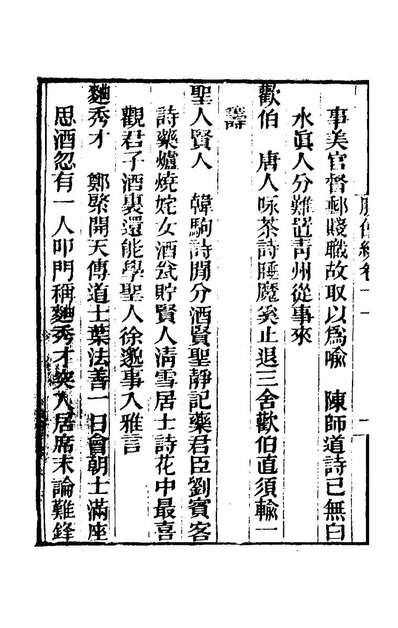 事美官督郵賤職故取以爲喻　陳師道詩已無白
水眞人分難置青州從事來
歡伯　唐人咏茶詩睡魔奚止退三舍歡伯直須輸一
籌
聖人賢人　韓駒詩閒分酒賢聖靜記藥君臣劉賓客
詩藥爐燒姹女酒瓮貯賢人淸雪居士詩花中最喜
觀君子酒裏還能學聖人徐邈事入雅言
麯秀才　鄭綮開天傳道士葉法善一日會朝士滿座
思酒忽有一人叩門稱麯秀才突入居席末論難鋒